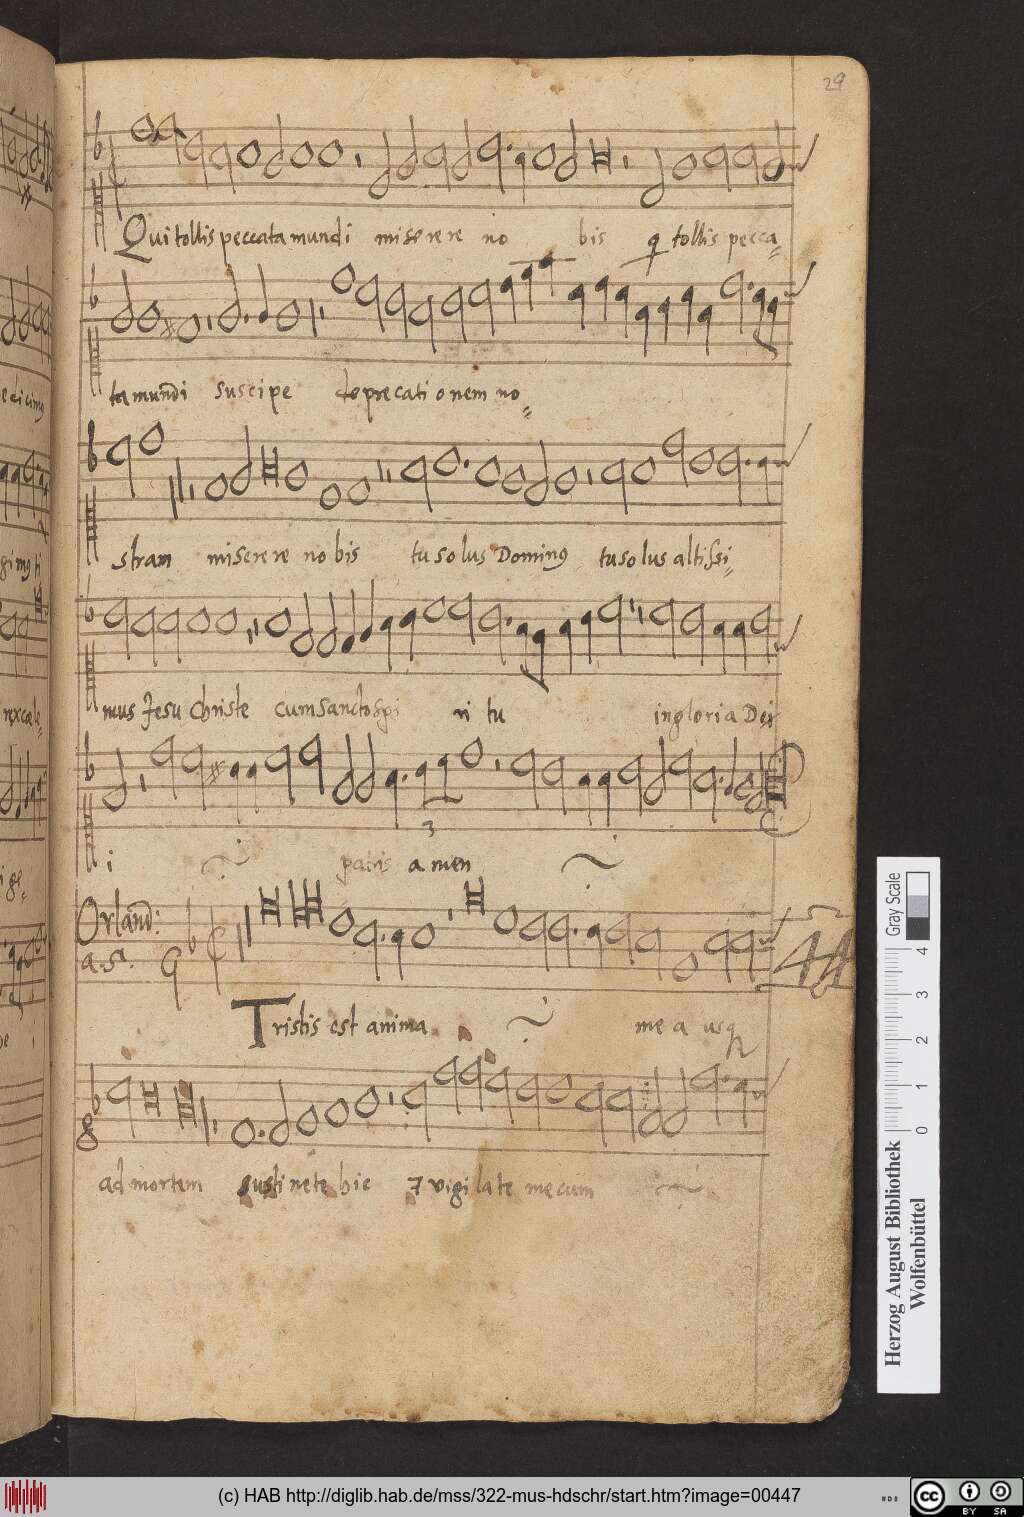 29
Qui tollis peccata mundi miserere no bis q tollis pecca
ta mundi suscipe deprecationem no
stram miserere nobis tu solus Dominus tu solus altissi
mus Jesu Christe cum sancto spi ri tu in gloria Dei
3
i patris amen
Orland:
a.5.
44
Tristis est anima mea usq
ad mortem sustinete hic & vigilate mecum
Gray Scale
0 1 2 3 4
Herzog August Bibliothek
Wolfenbüttel
(c) HAB http://diglib.hab.de/mss/322-mus-hdschr/start.htm?image=00447
cc BY SA